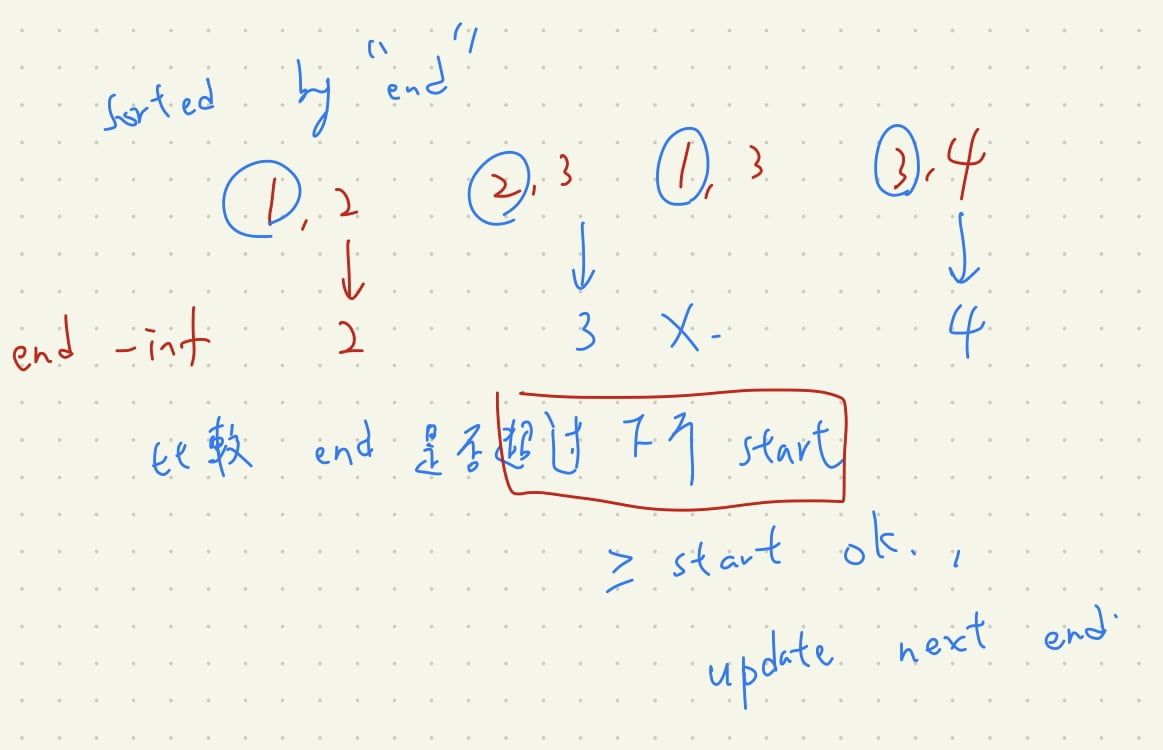 Sorted by "end"
1, 2 2, 3 1, 3 3, 4
end -inf 2 3 X. 4
比較 end 是否超过下个 start
≥ start ok.,
update next end.